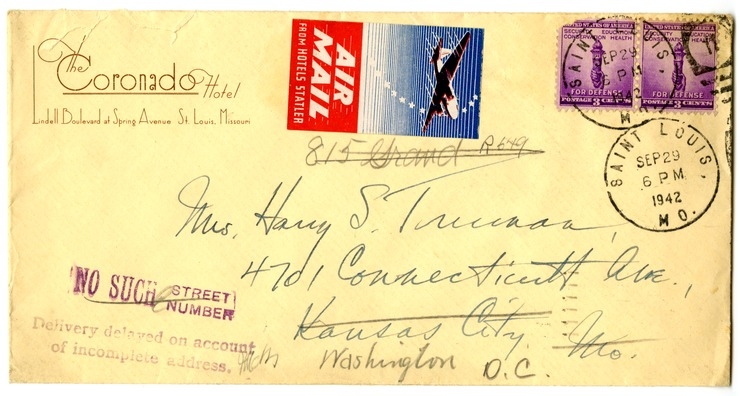 The Coronado Hotel
Lindell Boulevard at Spring Avenue St. Louis, Missouri
AIR MAIL
FROM HOTELS STATLER
UNITED STATES OF AMERICA
SECURITY EDUCATION
CONSERVATION HEALTH
FOR DEFENSE
POSTAGE 3 CENTS
UNITED STATES OF AMERICA
SECURITY EDUCATION
CONSERVATION HEALTH
FOR DEFENSE
POSTAGE 3 CENTS
SAINT LOUIS,
SEP 29
6 PM
1942
MO.
SAINT LOUIS,
SEP 29
6 PM
1942
MO.
815 Grand R 649
Mrs. Harry S. Truman,
4701 Connecticutt Ave.,
Kansas City, Mo.
Washington D.C.
NO SUCH STREET NUMBER
Delivery delayed on account
of incomplete address.